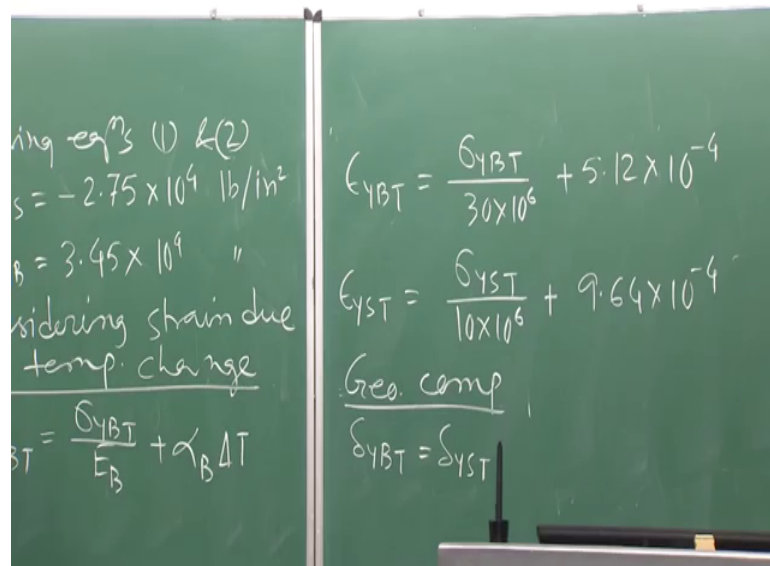 ing eqⁿs (1) &(2)
s = -2.75×10⁴ lb/in²
B = 3.45×10⁴ "
sidering strain due
temp. change
BT = σyBT/E_B + α_B ΔT
ϵyBT = σyBT/30×10⁶ + 5.12×10⁻⁴
ϵyST = σyST/10×10⁶ + 9.64×10⁻⁴
Geo. comp
δyBT = δyST